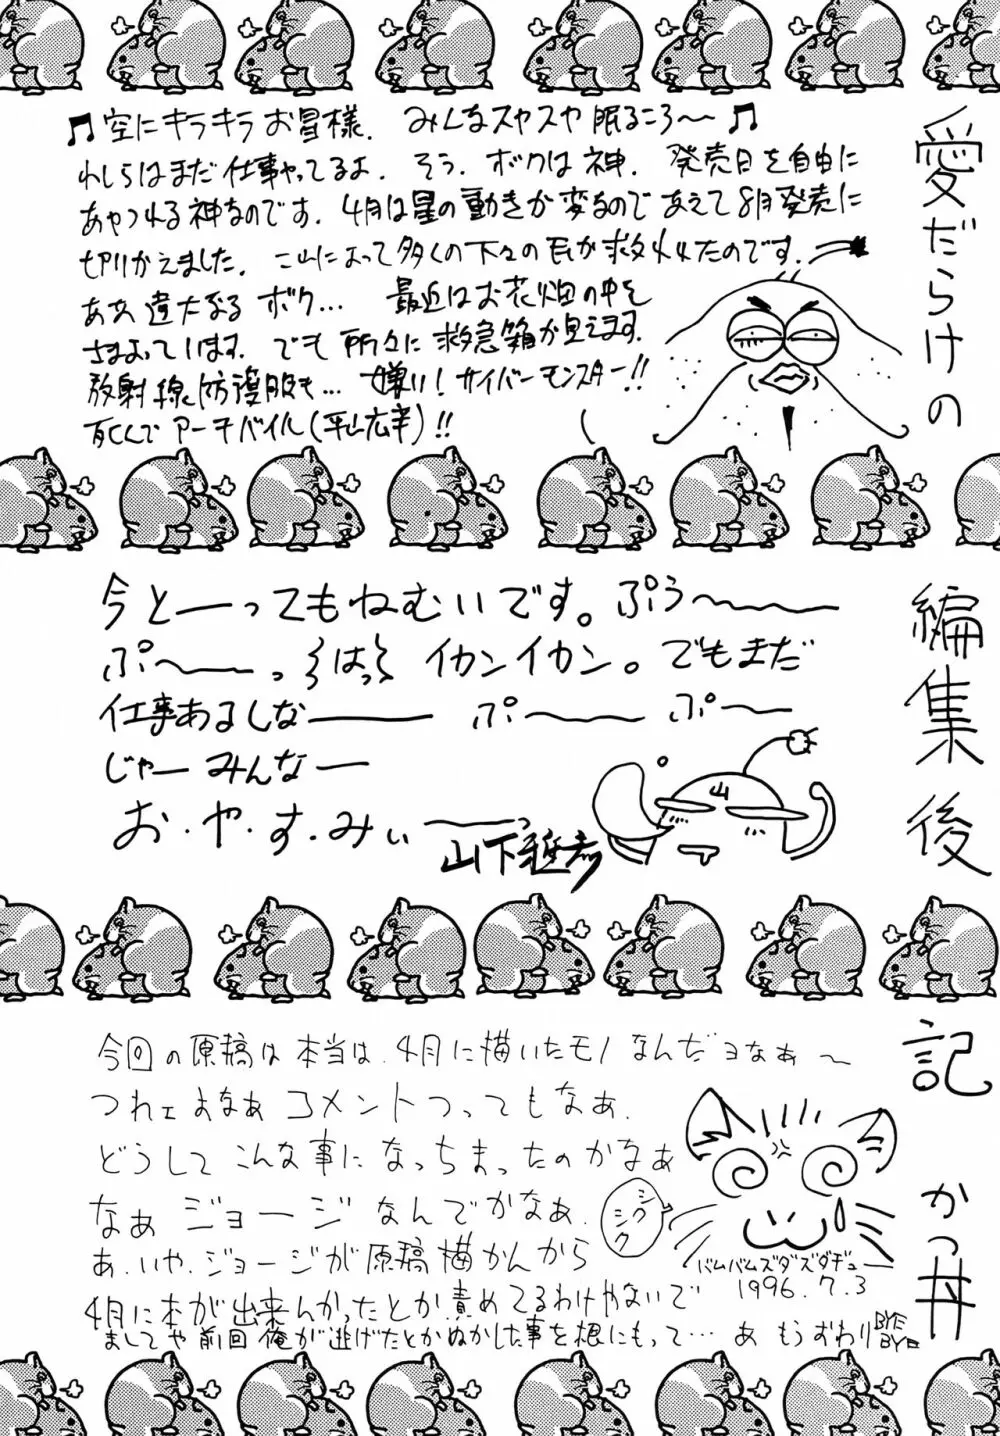 愛だらけの編集後記 かつ丼
♫空にキラキラお星様. みんなスヤスヤ眠るころ〜♫
わしらはまだ仕事やってるよ. そう. ボクは神. 発売日を自由に
あやつれる神なのです. 4月は星の動きが変なのであえて8月発売に
切りかえました. これによって多くの下々の民が救われたのです.
ああ 違大なる ボク… 最近はお花畑の中を
さまよっています. でも 所々に救急箱が見えます.
放射線防護服も… 嫌い!サイバーモンスター!!
死んで アーキバイル(平山広幸)!!
今とーってもねむいです。ぷぅ〜
ぷ〜っ はっ イカンイカン。でもまだ
仕事あるしなー ぷ〜 ぷ〜
じゃー みんなー
お・や・す・みぃーっ
山下雅彦
山
今回の原稿は本当は.4月に描いたモノなんだヨなぁ〜
つれェよなぁ コメントつってもなぁ.
どうしてこんな事になっちまったのかなぁ
なぁ ジョージ なんでかなぁ.
シクシク
あ.いや.ジョージが原稿描かんから
4月に本が出来んかったとか責めてるわけやないで
ましてや前回俺が逃げたとかぬかした事を根にもって… あ もうおわり
BYE
BYE
バムバムズダズダヂュー
1996.7.3